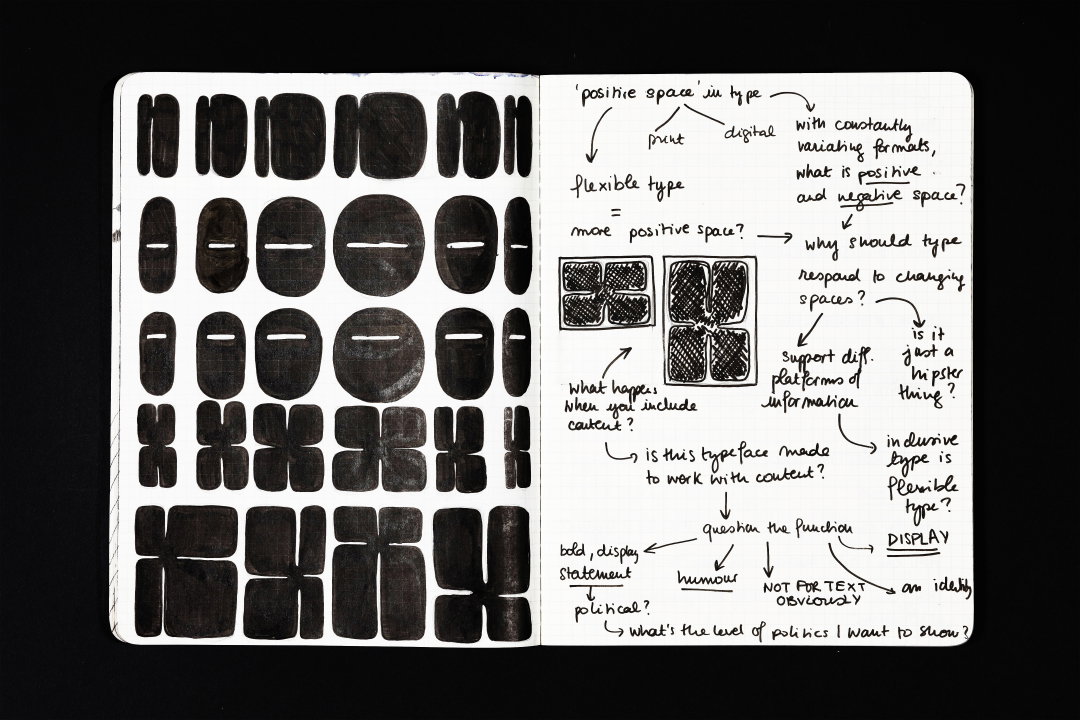 'positive space' in type
print
digital
with constantly
variating formats,
what is positive
and negative space?
flexible type
=
more positive space?
why should type
respond to changing
spaces?
is it
just a
hipster
thing?
support diff.
platforms of
information
what happens
when you include
content?
inclusive
type is
flexible
type?
is this typeface made
to work with content?
question the function
DISPLAY
bold, display
statement
humour
NOT FOR TEXT
OBVIOUSLY
an identity
political?
what's the level of politics I want to show?